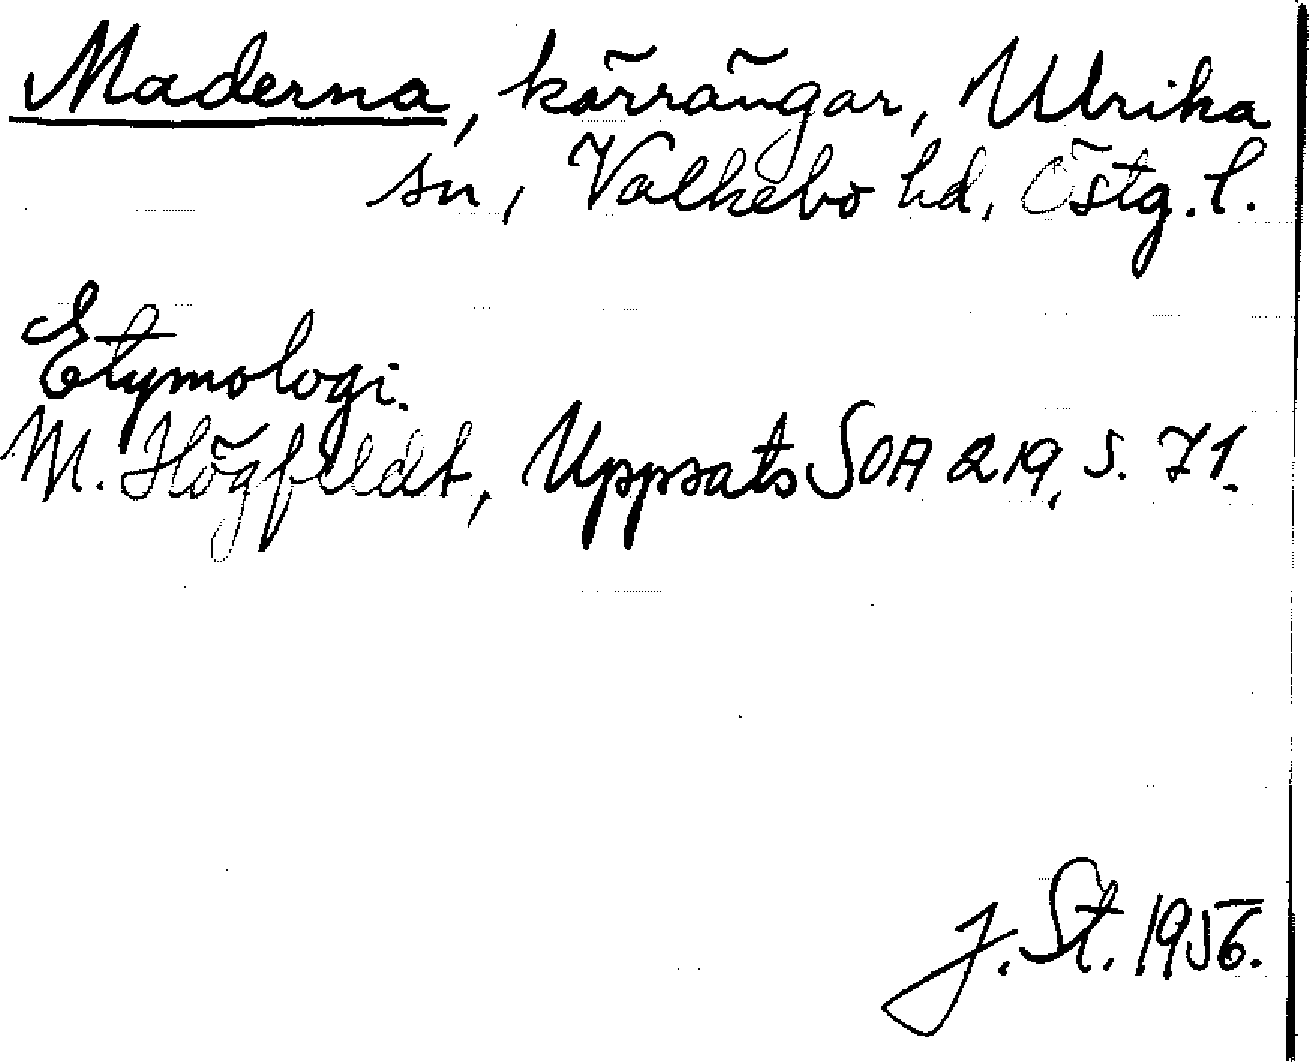 Maderna, kärrängar, Ulrika
sn, Valkebo hd, Östg. l.
Etymologi.
M. Högfeldt, Uppsats SOA 219, s. 71.
J. St. 1956.